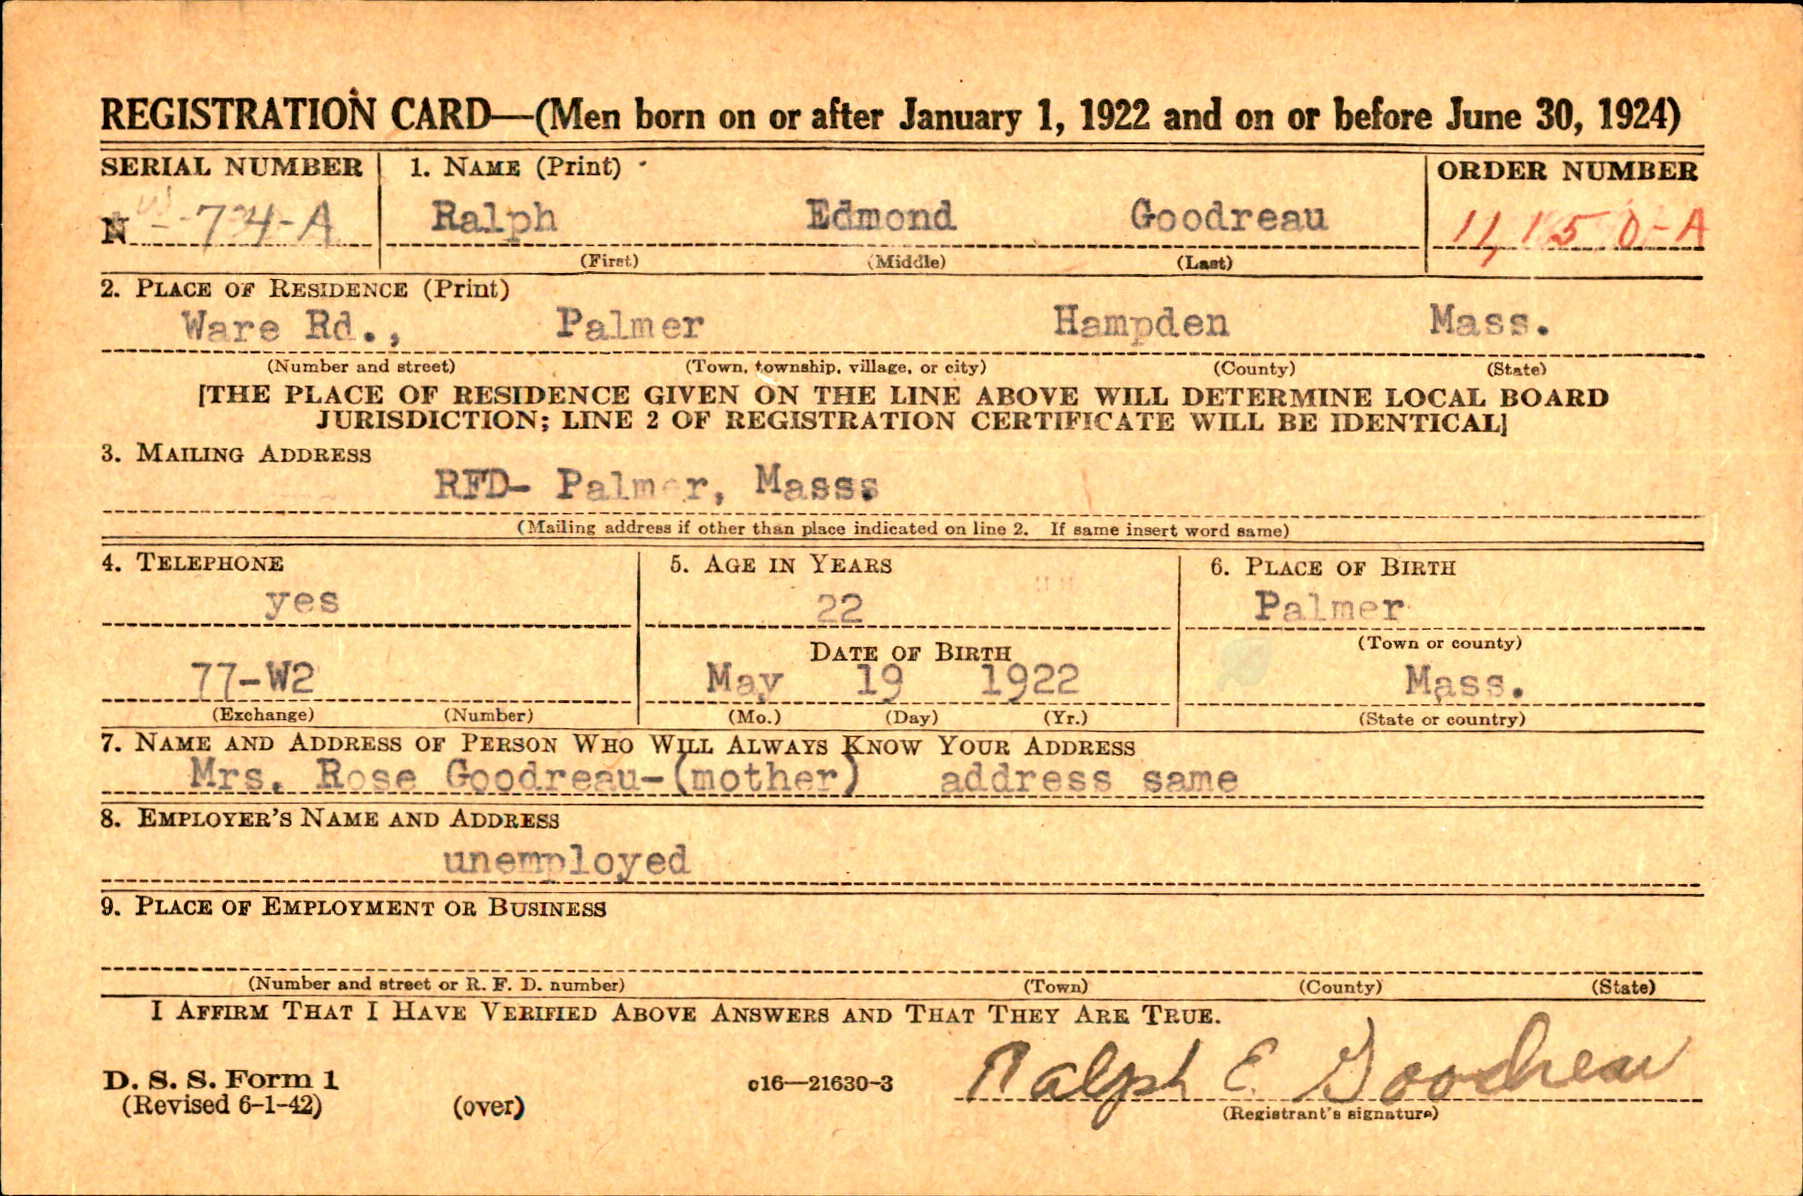 REGISTRATION CARD—(Men born on or after January 1, 1922 and on or before June 30, 1924)
SERIAL NUMBER 1. NAME (Print) ORDER NUMBER
N -74-A Ralph Edmond Goodreau 11,150-A
(First) (Middle) (Last)
2. PLACE OF RESIDENCE (Print)
Ware Rd., Palmer Hampden Mass.
(Number and street) (Town, township, village, or city) (County) (State)
[THE PLACE OF RESIDENCE GIVEN ON THE LINE ABOVE WILL DETERMINE LOCAL BOARD
JURISDICTION; LINE 2 OF REGISTRATION CERTIFICATE WILL BE IDENTICAL]
3. MAILING ADDRESS
RFD- Palmer, Masss
(Mailing address if other than place indicated on line 2. If same insert word same)
4. TELEPHONE 5. AGE IN YEARS 6. PLACE OF BIRTH
yes 22 Palmer
DATE OF BIRTH (Town or county)
77-W2 May 19 1922 Mass.
(Exchange) (Number) (Mo.) (Day) (Yr.) (State or country)
7. NAME AND ADDRESS OF PERSON WHO WILL ALWAYS KNOW YOUR ADDRESS
Mrs. Rose Goodreau-(mother) address same
8. EMPLOYER'S NAME AND ADDRESS
unemployed
9. PLACE OF EMPLOYMENT OR BUSINESS
(Number and street or R. F. D. number) (Town) (County) (State)
I AFFIRM THAT I HAVE VERIFIED ABOVE ANSWERS AND THAT THEY ARE TRUE.
D. S. S. Form 1 c16—21630-3 Ralph E. Goodreau
(Revised 6-1-42) (over) (Registrant's signature)